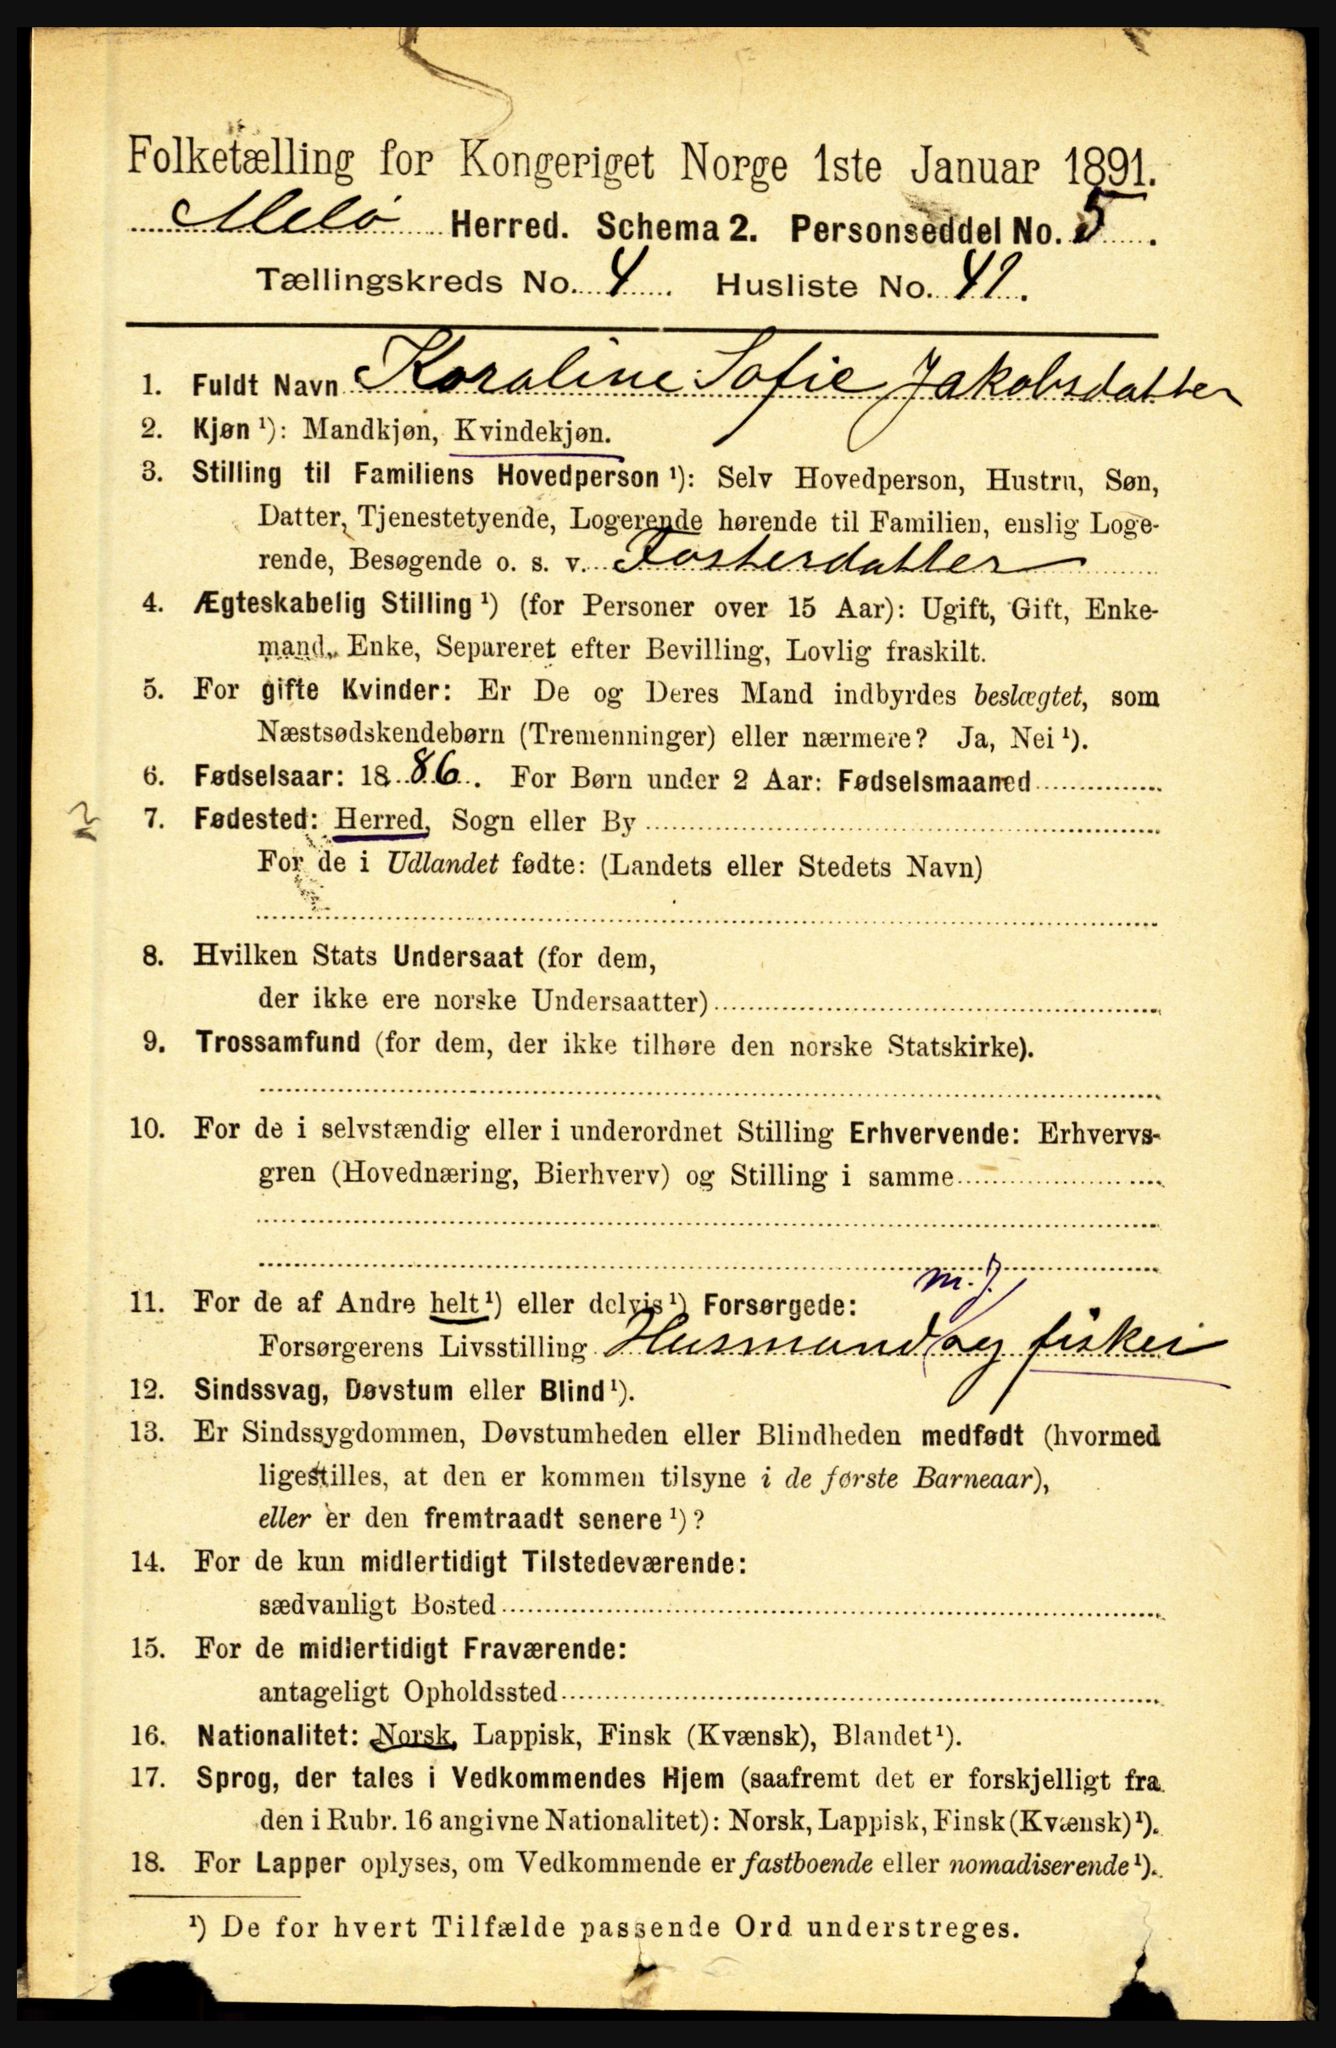 Folketælling for Kongeriget Norge 1ste Januar 1891.
Melö Herred. Schema 2. Personseddel No. 5.
Tællingskreds No. 4. Husliste No. 41.
1. Fuldt Navn Karoline Sofie Jakobsdatter
2. Kjøn ¹): Mandkjøn, Kvindekjøn.
3. Stilling til Familiens Hovedperson ¹): Selv Hovedperson, Hustru, Søn,
Datter, Tjenestetyende, Logerende hørende til Familien, enslig Loge-
rende, Besøgende o. s. v. Fosterdatter
4. Ægteskabelig Stilling ¹) (for Personer over 15 Aar): Ugift, Gift, Enke-
mand, Enke, Separeret efter Bevilling, Lovlig fraskilt.
5. For gifte Kvinder: Er De og Deres Mand indbyrdes beslægtet, som
Næstsødskendebørn (Tremenninger) eller nærmere? Ja, Nei ¹).
6. Fødselsaar: 1886. For Børn under 2 Aar: Fødselsmaaned
7. Fødested: Herred, Sogn eller By
For de i Udlandet fødte: (Landets eller Stedets Navn)
8. Hvilken Stats Undersaat (for dem,
der ikke ere norske Undersaatter)
9. Trossamfund (for dem, der ikke tilhøre den norske Statskirke).
10. For de i selvstændig eller i underordnet Stilling Erhvervende: Erhvervs-
gren (Hovednæring, Bierhverv) og Stilling i samme
m. J.
11. For de af Andre helt ¹) eller delvis ¹) Forsørgede:
Forsørgerens Livsstilling Husmand og fisker
12. Sindssvag, Døvstum eller Blind ¹).
13. Er Sindssygdommen, Døvstumheden eller Blindheden medfødt (hvormed
ligestilles, at den er kommen tilsyne i de første Barneaar),
eller er den fremtraadt senere ¹)?
14. For de kun midlertidigt Tilstedeværende:
sædvanligt Bosted
15. For de midlertidigt Fraværende:
antageligt Opholdssted
16. Nationalitet: Norsk, Lappisk, Finsk (Kvænsk), Blandet ¹).
17. Sprog, der tales i Vedkommendes Hjem (saafremt det er forskjelligt fra
den i Rubr. 16 angivne Nationalitet): Norsk, Lappisk, Finsk (Kvænsk) ¹).
18. For Lapper oplyses, om Vedkommende er fastboende eller nomadiserende ¹).
¹) De for hvert Tilfælde passende Ord understreges.